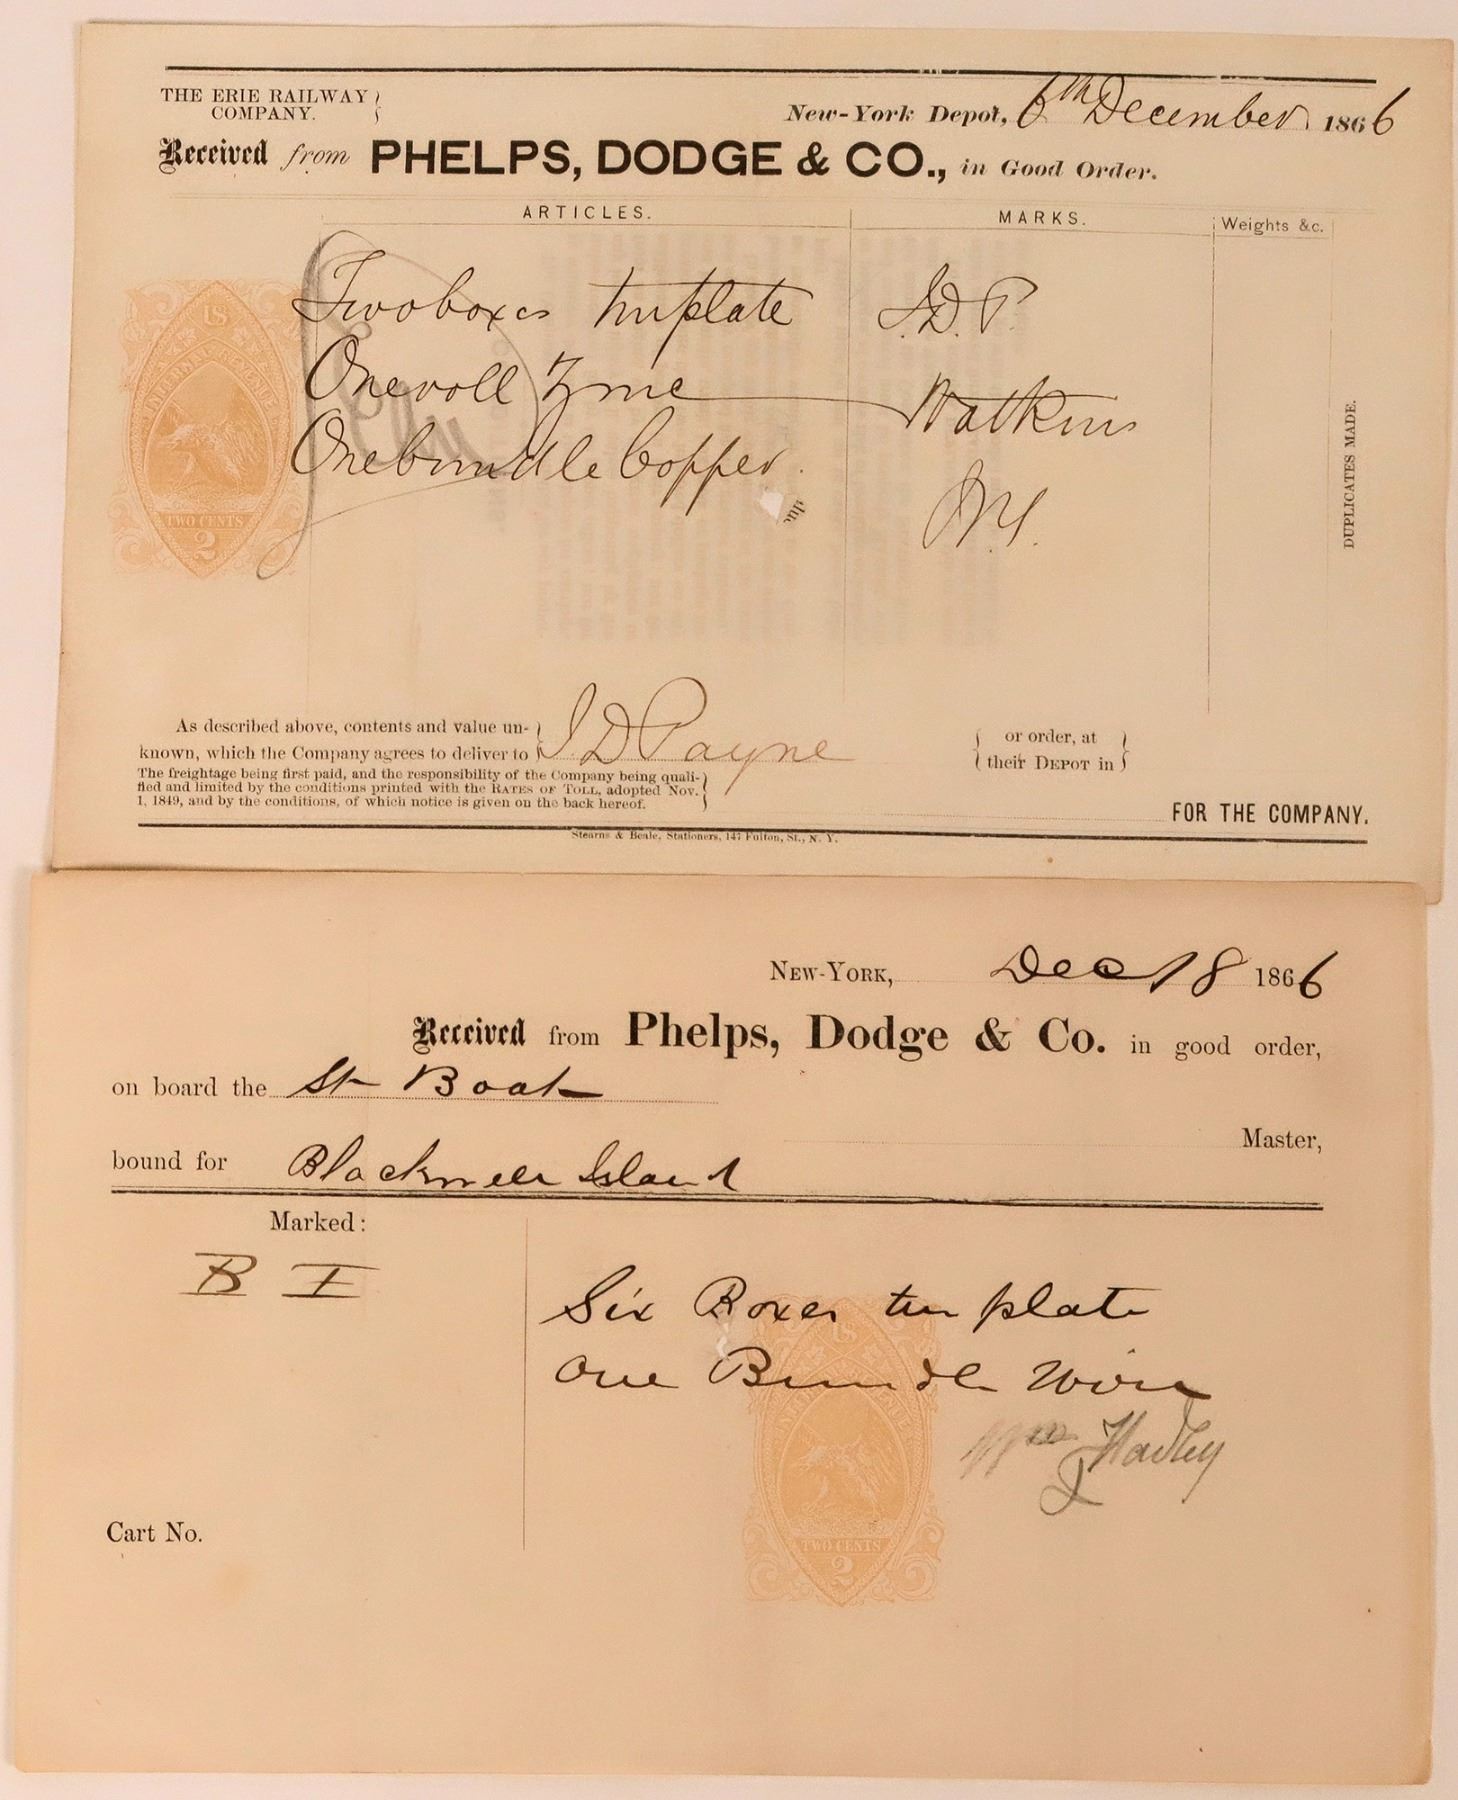 THE ERIE RAILWAY
COMPANY.
New-York Depot, 6th December 1866
Received from PHELPS, DODGE & CO., in Good Order.
ARTICLES. MARKS. Weights &c.
Two boxes tinplate J.D.P.
One roll Zinc Watkins
One bundle Copper. N.Y.
US
INTERNAL REVENUE
TWO CENTS
2
DUPLICATES MADE.
As described above, contents and value un-
known, which the Company agrees to deliver to J D Payne or order, at
their DEPOT in
The freightage being first paid, and the responsibility of the Company being quali-
fied and limited by the conditions printed with the RATES OF TOLL, adopted Nov.
1, 1849, and by the conditions, of which notice is given on the back hereof.
FOR THE COMPANY.
Stearns & Beale, Stationers, 147 Fulton, St., N. Y.
NEW-YORK, Dec 18 1866
Received from Phelps, Dodge & Co. in good order,
on board the St Boat
Master,
bound for Blackwell Island
Marked:
B I
Six Boxes tin plate
One Bundle Wire
Wm Hadley
US
INTERNAL REVENUE
TWO CENTS
2
Cart No.